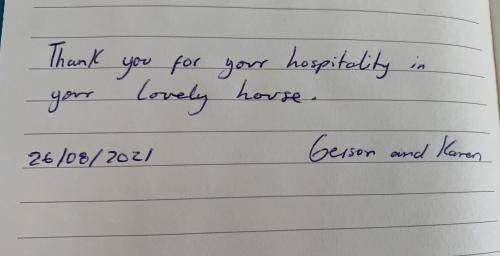 Thank you for your hospitality in
your lovely house.
26/08/2021 Gerson and Karen